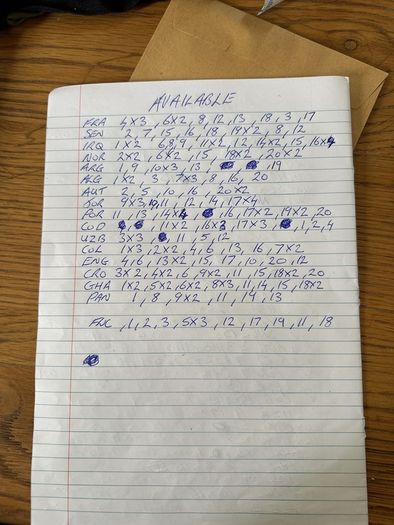 AVAILABLE
FRA 4x3, 6x2, 8, 12, 13, 18, 3, 17
SEN 2, 7, 15, 16, 18, 19x2, 8, 12
IRQ 1x2 6,8,9, 11x2, 12, 14x2, 15, 16x4
NOR 2x2, 6x2, 15, 18x2, 20x2
ARG 1, 9, 10x3, 13, 19
ALG 1x2, 3, 7x3, 8, 16, 20
AUT 2, 5, 10, 16, 20x2
JOR 9x3, 10, 11, 12, 14, 17x4
POR 11, 13, 14x4 16, 17x2, 19x2, 20
COD 11x2, 16x3, 17x3, 1, 2, 4
UZB 3x3, 11, 5, 12
COL 1x3, 2x2, 4, 6, 13, 16, 7x2
ENG 4, 6, 13x2, 15, 17, 10, 20, 12
CRO 3x2, 4x2, 6, 9x2, 11, 15, 18x2, 20
GHA 1x2, 5x2, 6x2, 8x3, 11, 14, 15, 18x2
PAN 1, 8, 9x2, 11, 19, 13
FWC, 1, 2, 3, 5x3, 12, 17, 19, 11, 18